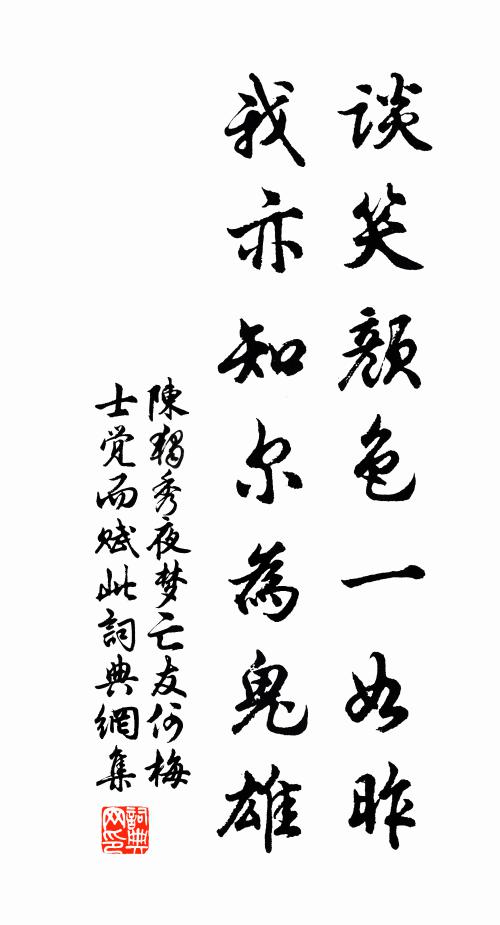 谈笑颜色一如昨
我亦知尔為鬼雄
陳獨秀夜梦亡友何梅
士觉而赋此詞典網集
詞典
网印